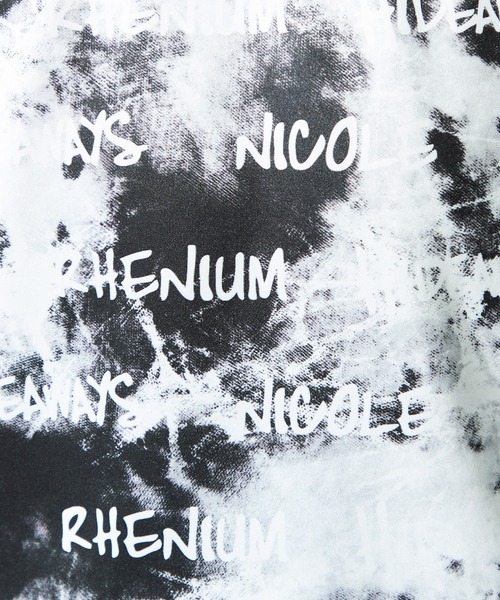 RHENIUM HIDEA
AWAYS NICOLE
RHENIUM HIDEA
EAWAYS NICOLE
RHENIUM HID